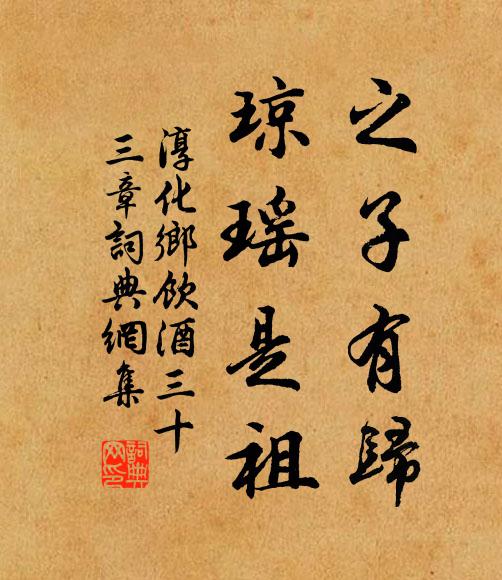 之子有歸
琼瑶是祖
淳化鄉飲酒三十
三章詞典網集
詞典网印